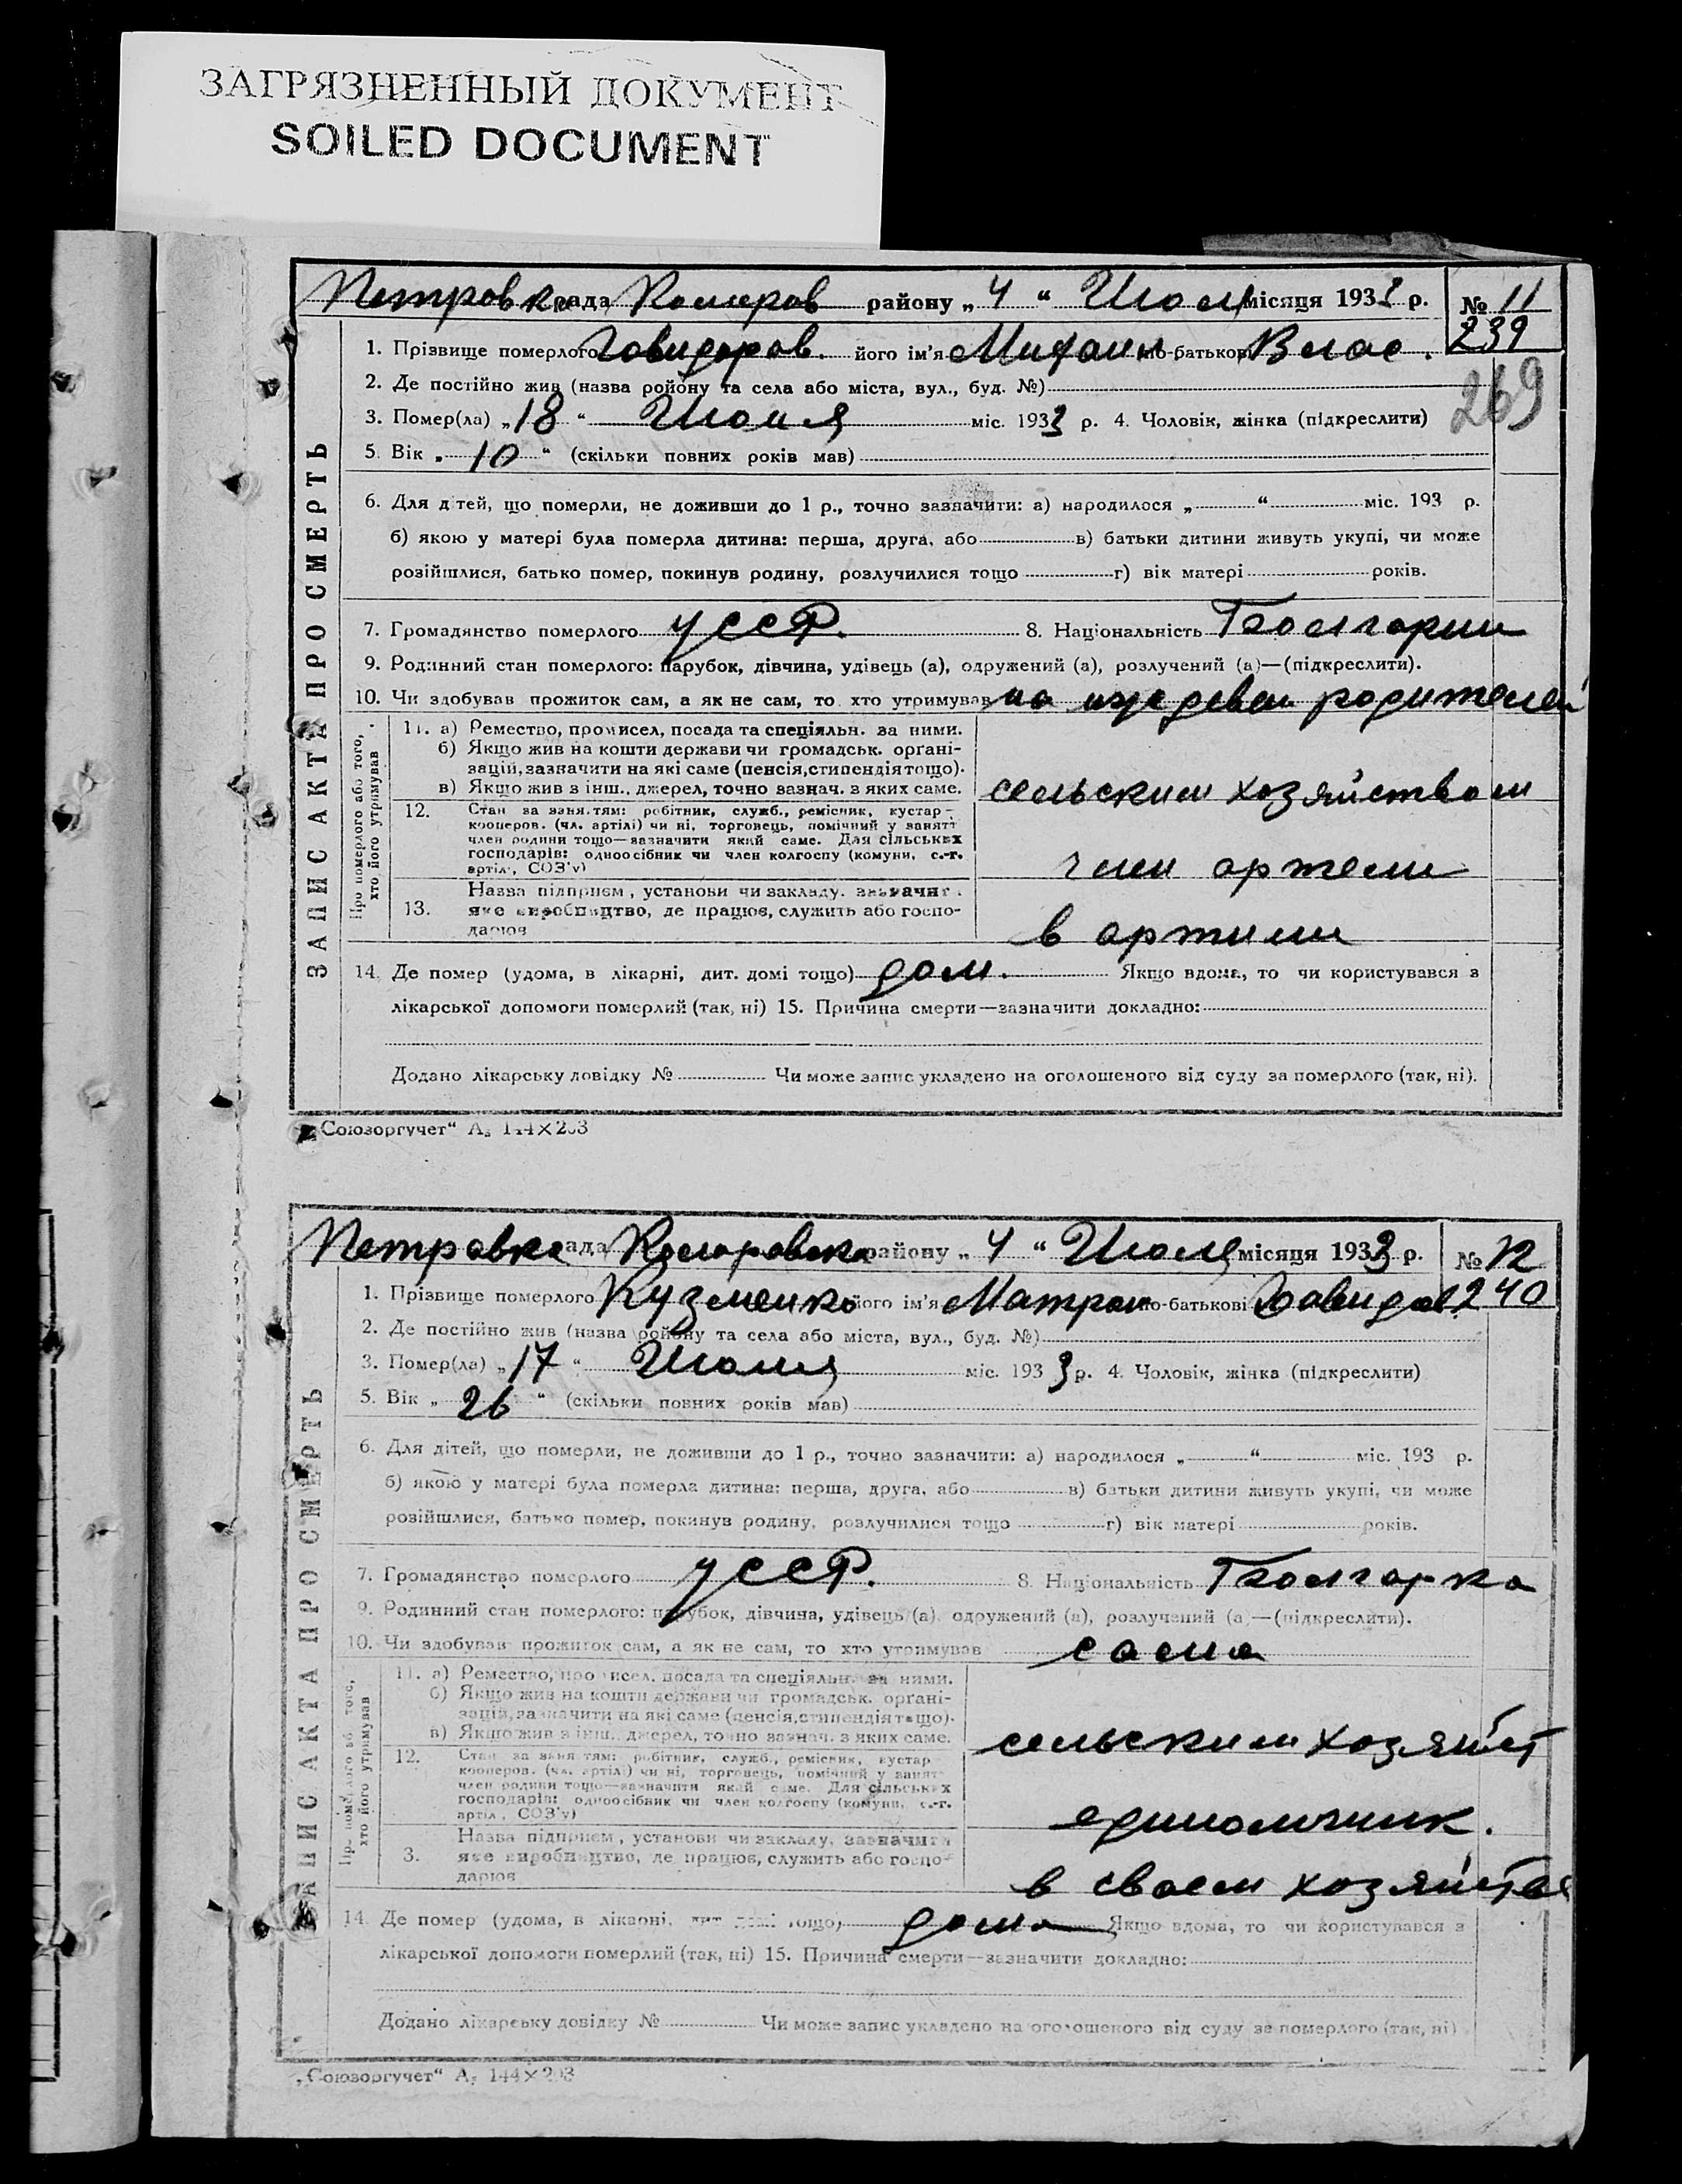 ЗАГРЯЗНЕННЫЙ ДОКУМЕНТ
SOILED DOCUMENT
Петровка рада Комаров району „4“ Июля місяця 1933 р. № 11
239
1. Прізвище померлого його ім'я Михаил по-батькові Влас.
269
2. Де постійно жив (назва ройону та села або міста, вул., буд. №)
3. Помер(ла) „18“ Июня міс. 1933 р. 4. Чоловік, жінка (підкреслити)
5. Вік „10“ (скільки повних років мав)
6. Для дітей, що померли, не доживши до 1 р., точно зазначити: а) народилося „ “ міс. 193 р.
б) якою у матері була померла дитина: перша, друга, або в) батьки дитини живуть укупі, чи може
розійшлися, батько помер, покинув родину, розлучилися тощо г) вік матері років.
7. Громадянство померлого УССР. 8. Національність Болгарин
9. Родинний стан померлого: парубок, дівчина, удівець (а), одружений (а), розлучений (а)—(підкреслити).
10. Чи здобував прожиток сам, а як не сам, то хто утримував на иждевен родителей
ЗАПИС АКТА ПРО СМЕРТЬ
Про померлого або того,
хто його утримував
11. а) Ремество, промисел, посада та спеціяльн. за ними.
б) Якщо жив на кошти держави чи громадськ. орґані-
зацій, зазначити на які саме (пенсія, стипендія тощо).
в) Якщо жив з інш. джерел, точно зазнач. з яких саме.
сельским хозяйством
12. Стан за заняттям: робітник, служб., ремісник, кустар-
кооперов. (чл. артілі) чи ні, торговець, помічний у занятт
член родини тощо—зазначити який саме. Для сільських
господарів: одноосібник чи член колгоспу (комуни, с.-г.
артіл., СОЗ'у)
член артели
Назва підприєм., установи чи закладу, зазначит.
13. яке виробництво, де працює, служить або госпо-
дарює
в артили
14. Де помер (удома, в лікарні, дит. домі тощо) дом. Якщо вдома, то чи користувався з
лікарської допомоги померлий (так, ні) 15. Причина смерти—зазначити докладно:
Додано лікарську довідку № Чи може запис укладено на оголошеного від суду за померлого (так, ні).
„Союзоргучет“ А₅ 144×203
Петровка рада Комаровска району „4“ Июля місяця 1933 р. № 12
1. Прізвище померлого Кузменко його ім'я Матрон по-батькові Давидов. 240
2. Де постійно жив (назва ройону та села або міста, вул., буд. №)
3. Помер(ла) „17“ Июня міс. 1933 р. 4. Чоловік, жінка (підкреслити)
5. Вік „26“ (скільки повних років мав)
6. Для дітей, що померли, не доживши до 1 р., точно зазначити: а) народилося „ “ міс. 193 р.
б) якою у матері була померла дитина: перша, друга, або в) батьки дитини живуть укупі, чи може
розійшлися, батько помер, покинув родину, розлучилися тощо г) вік матері років.
7. Громадянство померлого УССР. 8. Національність Болгарка
9. Родинний стан померлого: парубок, дівчина, удівець (а), одружений (а), розлучений (а)—(підкреслити).
10. Чи здобував прожиток сам, а як не сам, то хто утримував сама
ЗАПИС АКТА ПРО СМЕРТЬ
Про померлого або того,
хто його утримував
11. а) Ремество, промисел, посада та спеціяльн. за ними.
б) Якщо жив на кошти держави чи громадськ. орґані-
зацій, зазначити на які саме (пенсія, стипендія тощо).
в) Якщо жив з інш. джерел, точно зазнач. з яких саме.
сельским хозяйст
12. Стан за заняттям: робітник, служб., ремісник, кустар-
кооперов. (чл. артілі) чи ні, торговець, помічний у занятт
член родини тощо—зазначити який саме. Для сільських
господарів: одноосібник чи член колгоспу (комуни, с.-г.
артіл., СОЗ'у)
единоличник.
Назва підприєм., установи чи закладу, зазначити
3. яке виробництво, де працює, служить або госпо-
дарює
в своем хозяйстве
14. Де помер (удома, в лікарні, дит. домі тощо) дома Якщо вдома, то чи користувався з
лікарської допомоги померлий (так, ні) 15. Причина смерти—зазначити докладно:
Додано лікарську довідку № Чи може запис укладено на оголошеного від суду за померлого (так, ні)
„Союзоргучет“ А₅ 144×203